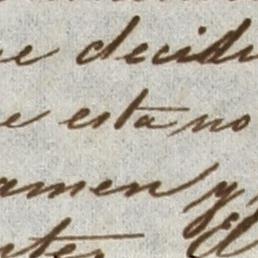 e decidi
e esta no
amen y
ntes El